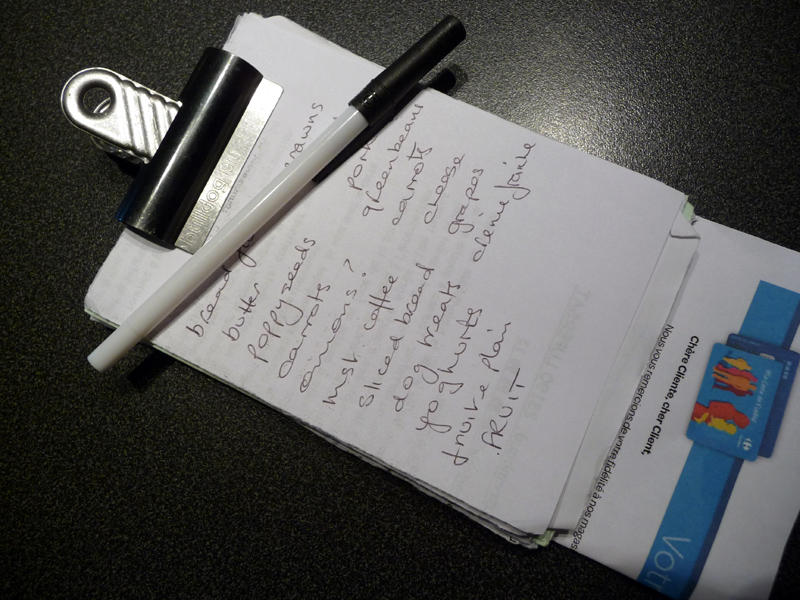 bread
butter
poppyseeds
carrots
onions?
inst. coffee
sliced bread
dog treats
yoghurts
fruit + plain
FRUIT
green beans
carrots
cheese
grapes
crème fraîche
Chère Cliente, cher Client,
Nous vous remercions de votre fidélité à nos